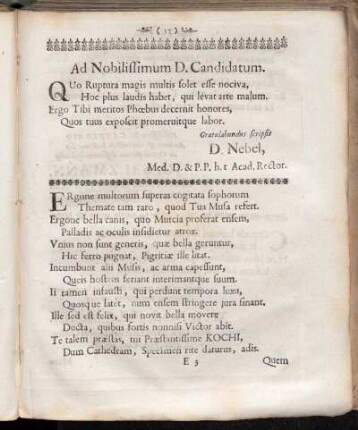 ( 37 )
Ad Nobilissimum D. Candidatum.
QUo Ruptura magis multis solet esse nociva,
Hoc plus laudis habet, qui lévat arte malum.
Ergo Tibi meritos Phœbus decernit honores,
Quos tuus exposcit promeruitque labor.
Gratulabundus scripsit
D. Nebel,
Med. D. & P. P. h. t Acad. Rector.
ERgone multorum superas cogitata sophorum
Themate tam raro, quod Tua Musa refert.
Ergone bella canis, quo Murcia proferat ensem,
Palladis ac oculis insidietur atrox.
Vnius non sunt generis, quæ bella geruntur,
Hic ferro pugnat, Pigritiæ ille litat.
Incumbunt alii Musis, ac arma capessunt,
Queis hostem feriant interimantque suum.
Ii tamen infausti, qui perdunt tempora
Quosque latet, num ensem stringere jura sinant.
Ille sed est felix, qui novit bella movere
Docta, quibus fortis nonnisi Victor abit.
Te talem præstas, mi Præstantissime KOCHI,
Dum Cathedram, Specimen rite daturus, adis.
E 3 Quem